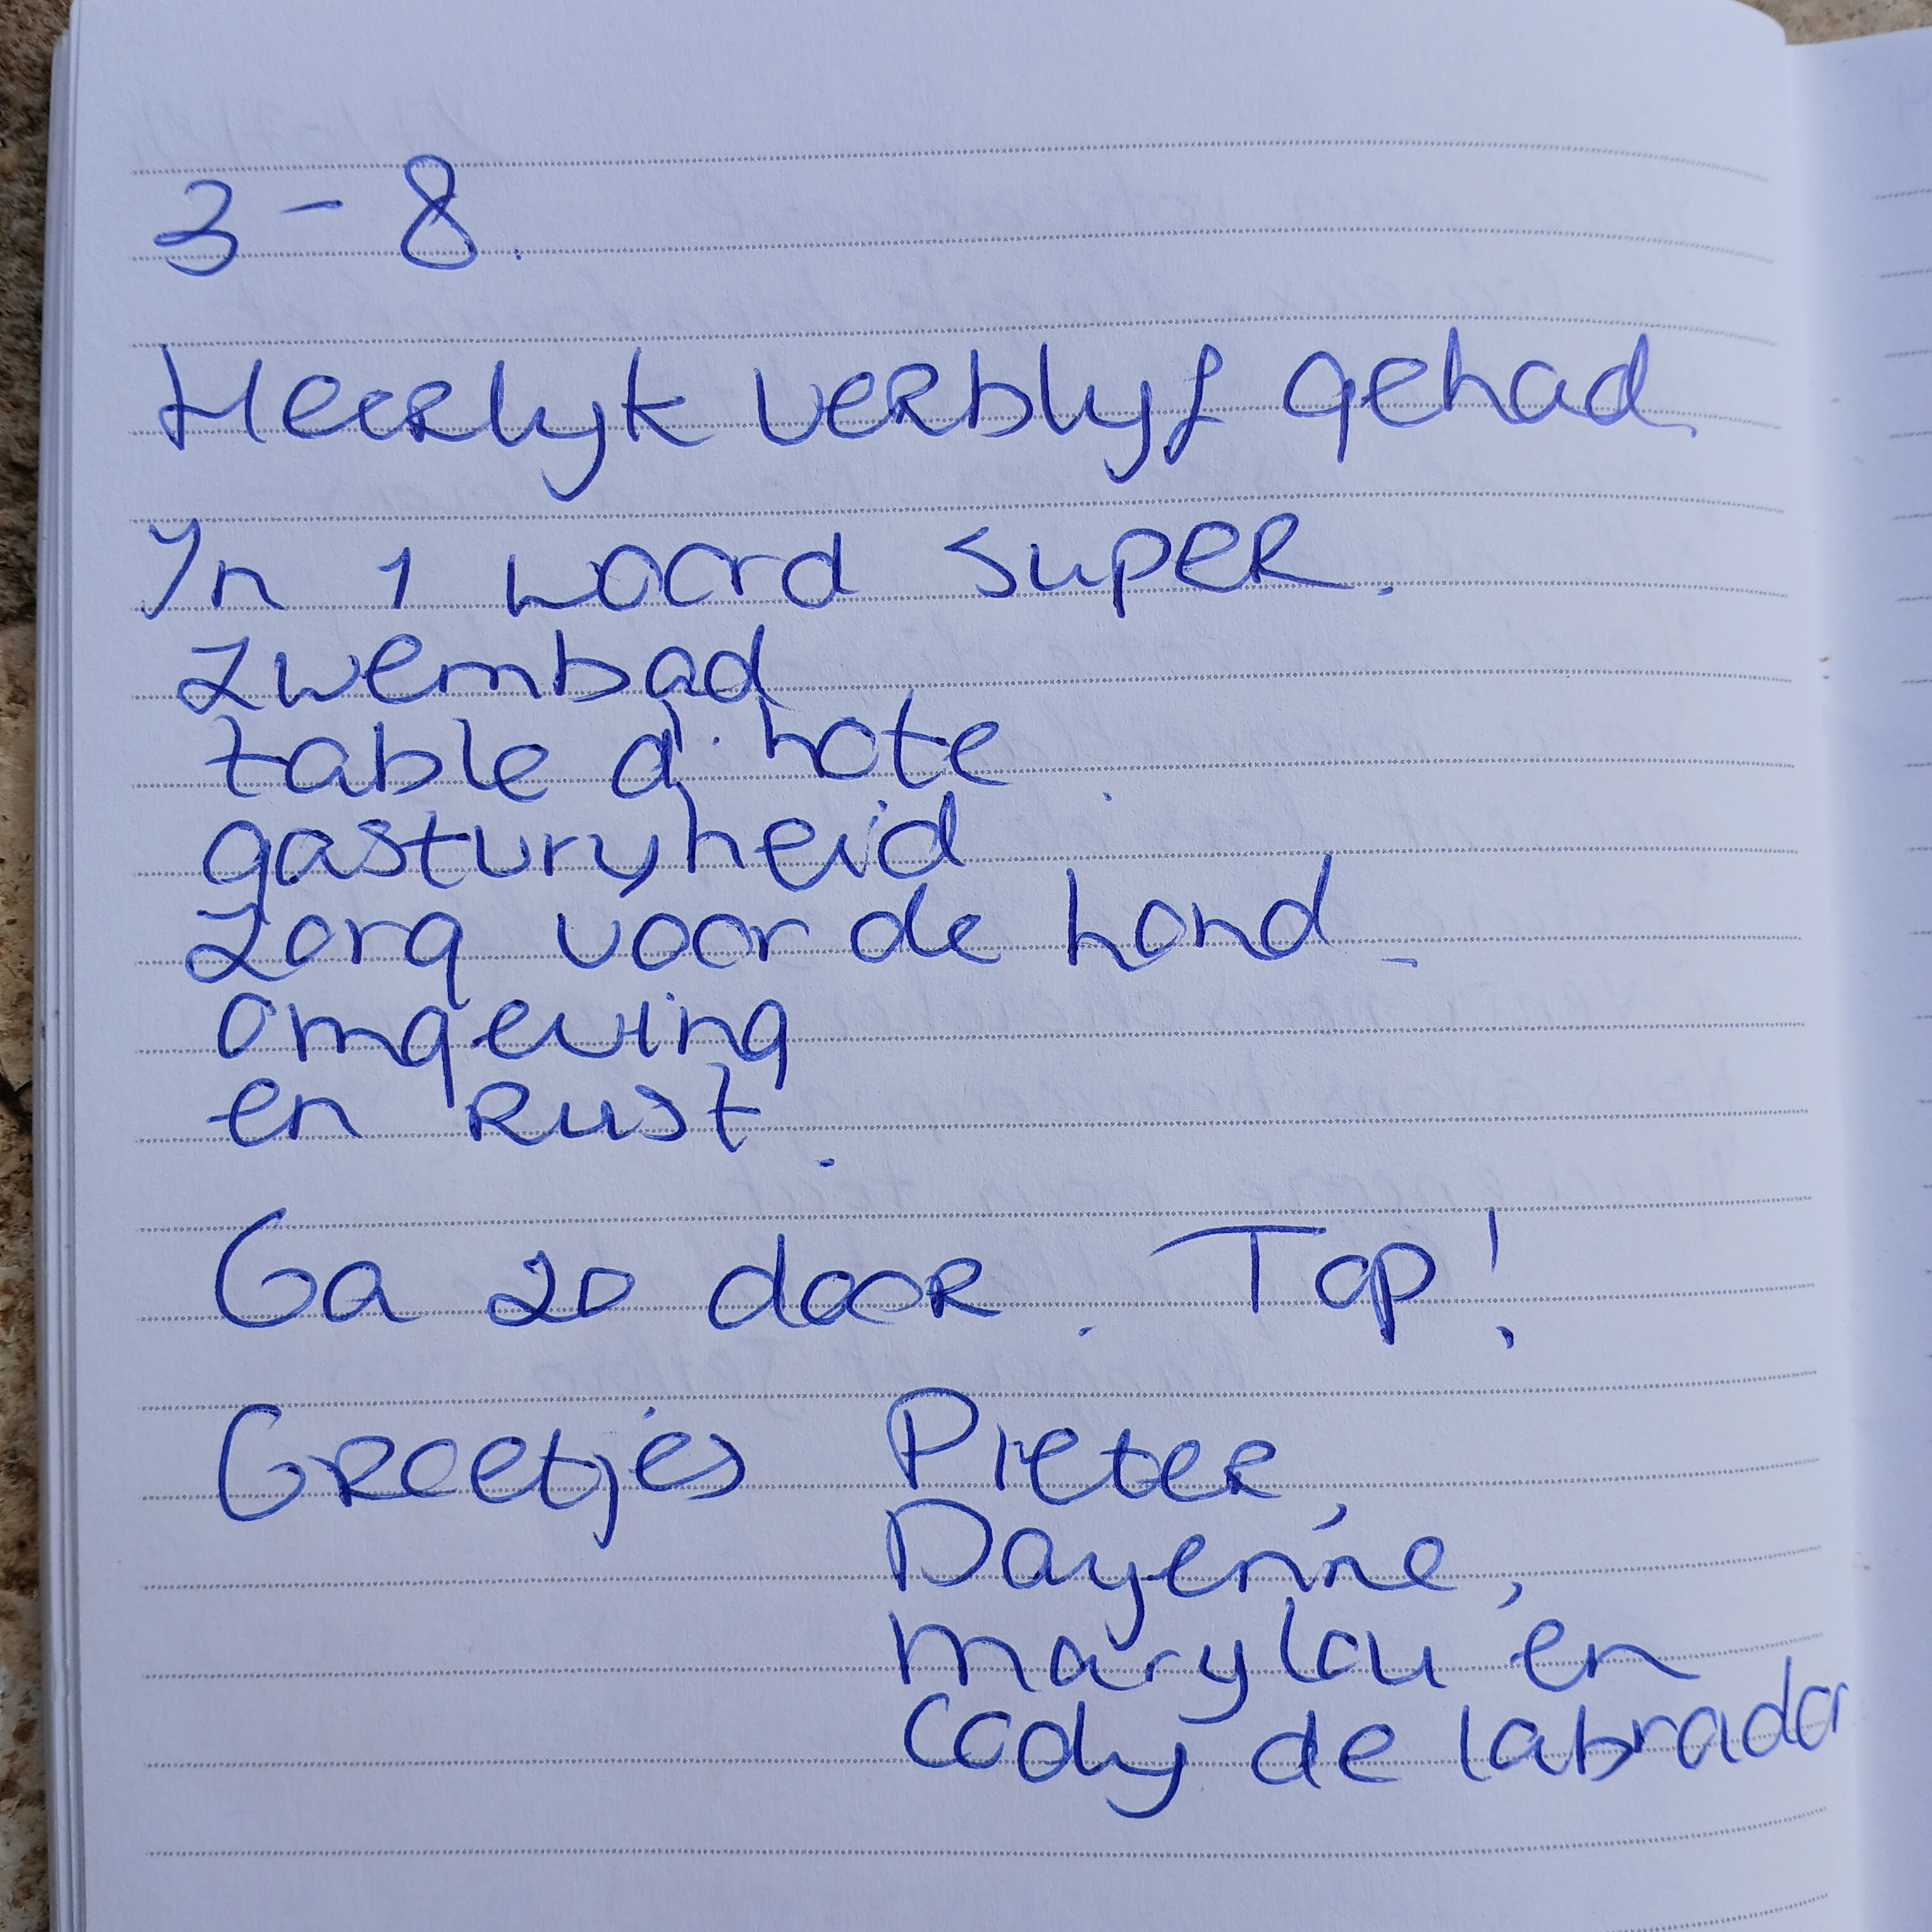 3 - 8.
Heerlyk verblyf gehad.
In 1 woord super.
zwembad
table d'hote.
gastvryheid
zorg voor de hond -
omgeving
en Rust.
Ga zo door. Top!
Groetjes Pieter,
Dayenne,
marylou en
Cody de labrador